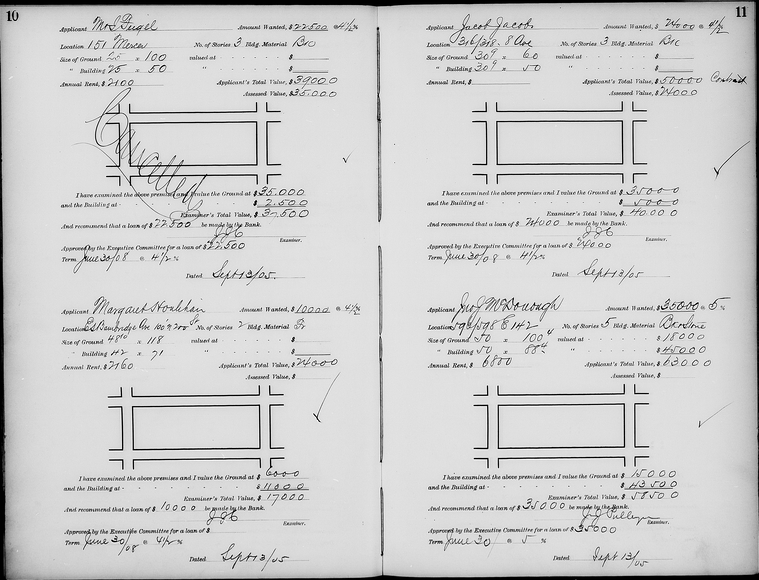 10
Applicant Mrs S Feigel Amount Wanted, $ 22500 @ 4½%
Location 151 Mercer No. of Stories 3 Bldg. Material Brc
Size of Ground 25 x 100 valued at - - - - $
" Building 25 x 50 " - - - - $
Annual Rent, $ 2100 Applicant's Total Value, $ 39000
Assessed Value, $ 35.000
Cancelled
I have examined the above premises and I value the Ground at $ 35.000
and the Building at - - - - $ 2.500
Examiner's Total Value, $ 37.500
And recommend that a loan of $ 22500 be made by the Bank.
Examiner.
Approved by the Executive Committee for a loan of $ 22500
Term June 30/08 @ 4½ %
Dated Sept 13/05.
Applicant Margaret Houlihan Amount Wanted, $ 10000 @ 4½%
Location E.S. Bainbridge Ave 100 N 200 St No. of Stories 2 Bldg. Material Fr
Size of Ground 48 x 118 valued at - - - - $
" Building 42 x 71 " - - - - $
Annual Rent, $ 2160 Applicant's Total Value, $ 24000
Assessed Value, $
I have examined the above premises and I value the Ground at $ 6000
and the Building at - - - - $ 11000
Examiner's Total Value, $ 17000
And recommend that a loan of $ 10000 be made by the Bank.
Examiner.
Approved by the Executive Committee for a loan of $
Term June 30/08 @ 4½ %
Dated Sept 13/05
11
Applicant Jacob Jacobs Amount Wanted, $ 24000 @ 4½
Location 316/318 - 8 Ave No. of Stories 3 Bldg. Material Brc
Size of Ground 30⁹ x 60 valued at - - - - $
" Building 30⁹ x 50 " - - - - $
Annual Rent, $ Applicant's Total Value, $ 50000 Contract
Assessed Value, $ 24000
I have examined the above premises and I value the Ground at $ 35000
and the Building at - - - - $ 5000
Examiner's Total Value, $ 40.000
And recommend that a loan of $ 24000 be made by the Bank.
Examiner.
Approved by the Executive Committee for a loan of $ 24000
Term June 30/08 @ 4½ %
Dated Sept 13/05
Applicant Jno J McDonough Amount Wanted, $ 35000 @ 5 %
Location 596/598 E 142 No. of Stories 5 Bldg. Material Brc Stone
Size of Ground 50 x 100 valued at - - - - $ 18000
" Building 50 x 88 " - - - - $ 45000
Annual Rent, $ 6800 Applicant's Total Value, $ 63000
Assessed Value, $
I have examined the above premises and I value the Ground at $ 15000
and the Building at - - - - $ 43500
Examiner's Total Value, $ 58500
And recommend that a loan of $ 35000 be made by the Bank.
Examiner.
Approved by the Executive Committee for a loan of $ 35000
Term June 30/ @ 5 %
Dated Sept 13/05